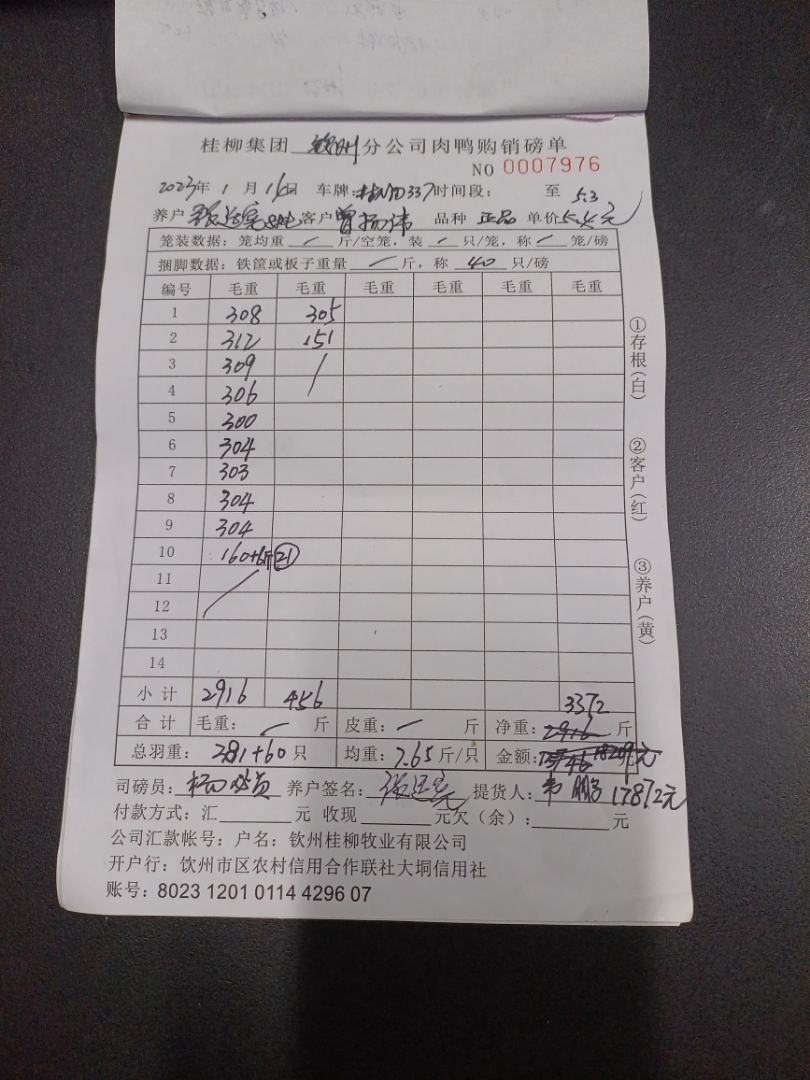 桂柳集团 钦州 分公司肉鸭购销磅单
NO 0007976
2023年 1 月 16日 车牌: 337 时间段: 至 5.3
养户 客户 曾扬伟 品种 正品 单价 5.4元
笼装数据: 笼均重 / 斤/空笼, 装 / 只/笼, 称 / 笼/磅
捆脚数据: 铁筐或板子重量 / 斤, 称 40 只/磅
编号 毛重 毛重 毛重 毛重 毛重 毛重
1 308 305
2 312 151
3 309 /
4 306
5 300
6 304
7 303
8 304
9 304
10 160+6斤 21
11 /
12
13
14
小计 2916 456 3372
合计 毛重: / 斤 皮重: / 斤 净重: 2916 斤
总羽重: 381+60 只 均重: 7.65 斤/只 金额: 元
司磅员: 养户签名: 提货人: 17872元
付款方式: 汇 元 收现 元欠(余): 元
公司汇款帐号: 户名: 钦州桂柳牧业有限公司
开户行: 饮州市区农村信用合作联社大垌信用社
账号: 8023 1201 0114 4296 07
①存根(白)
②客户(红)
③养户(黄)